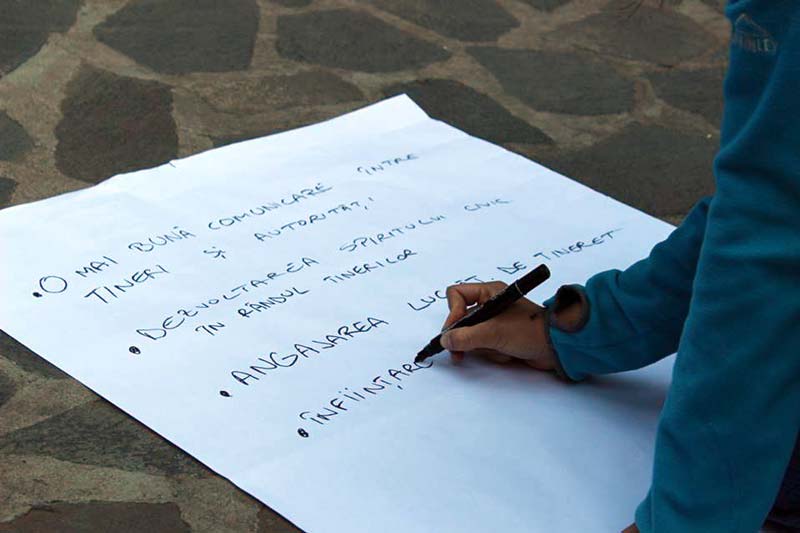 • O MAI BUNĂ COMUNICARE ÎNTRE
TINERI ȘI AUTORITĂȚI
• DEZVOLTAREA SPIRITULUI CIVIC
ÎN RÂNDUL TINERILOR
• ANGAJAREA DE TINERET
• ÎNFIINȚARE